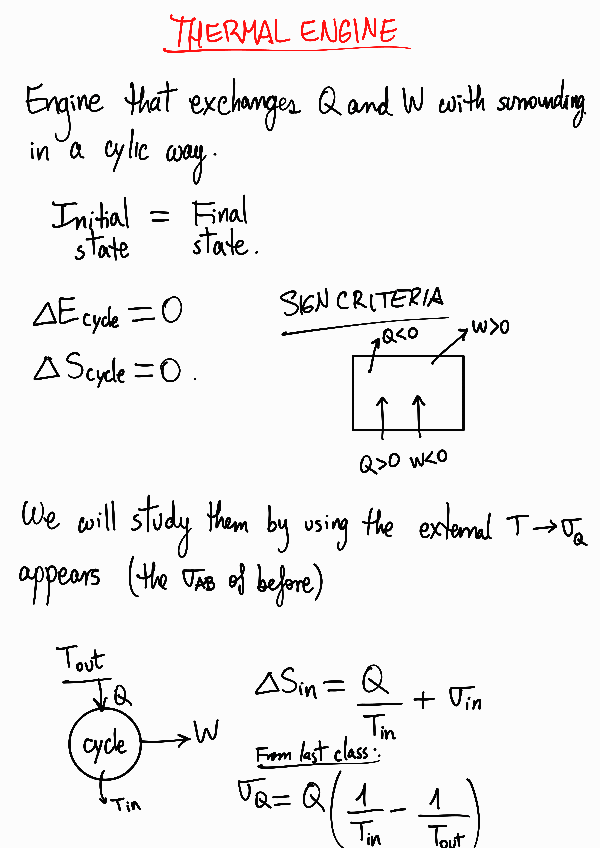 THERMAL ENGINE
Engine that exchanges Q and W with surrounding
in a cylic way.
Initial = Final
state state.
ΔEcycle = 0
ΔScycle = 0.
SIGN CRITERIA
Q<0 W>0
Q>0 W<0
We will study them by using the external T → σQ
appears (the σAB of before)
Tout
Q
cycle → W
Tin
ΔSin = Q/Tin + σin
From last class:
σQ = Q(1/Tin - 1/Tout)